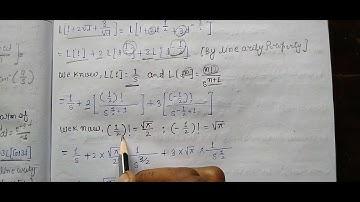 L[1+2√t + 3/√t] = L[1+2t^{1/2} + 3t^{-1/2}]
= L[1] + 2L[t^{1/2}] + 3L[t^{-1/2}] [By linearity Property]
We know, L[1] = 1/s and L[t^n] = n!/s^{n+1}
= 1/s + 2[(1/2)!/s^{1/2+1}] + 3[(-1/2)!/s^{-1/2+1}]
We know, (1/2)! = √π/2 ; (-1/2)! = √π
= 1/s + 2 × √π/2 × 1/s^{3/2} + 3 × √π × 1/s^{1/2}